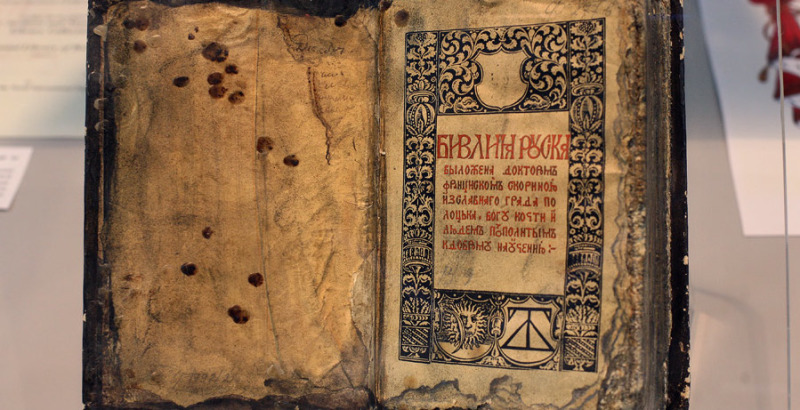 БИВЛИꙖ РУСКА
ВЫЛОЖЕНА ДОКТОРОМЪ
ФРАНЦИСКОМЪ СКОРИНОЮ
ИЗСЛАВНАГО ГРАДА ПО
ЛОЦЬКА, БОГУ КОЧТИ И
ЛЮДЕМЪ ПОСПОЛИТЫМЪ
КДОБРОМУ НАУЧЕНИЮ :~